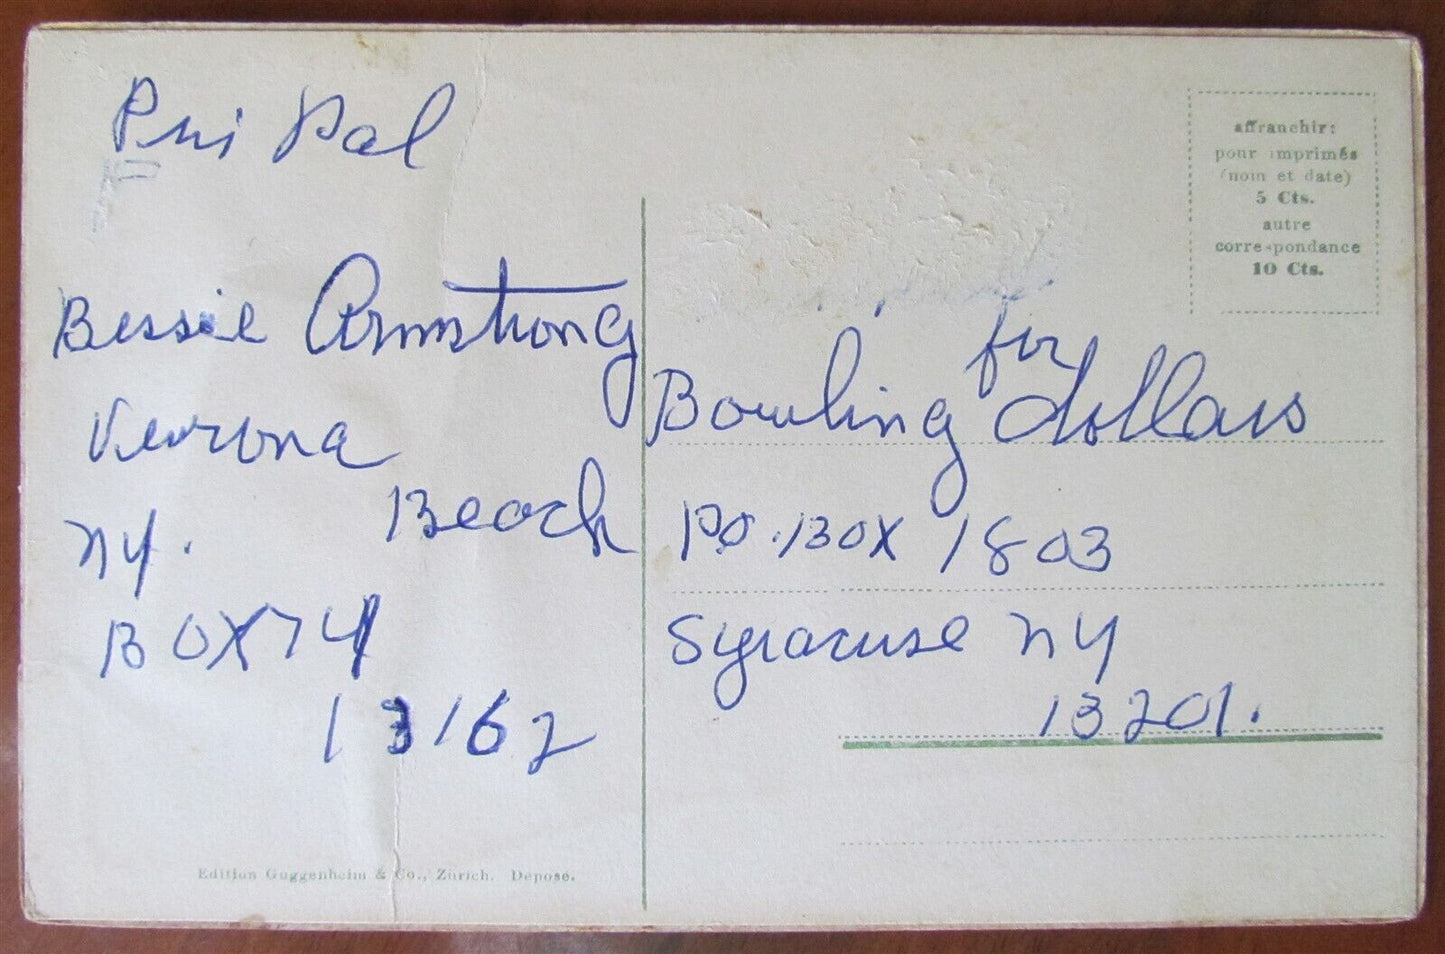 Pin Pal
Bessie Armstrong
Verona
Beach
NY.
BOX 74
13162
affranchir:
pour imprimés
(nom et date)
5 Cts.
autre
correspondance
10 Cts.
Bowling for dollars
PO. BOX 1803
Syracuse NY
13201.
Edition Guggenheim & Co., Zürich. Deposé.